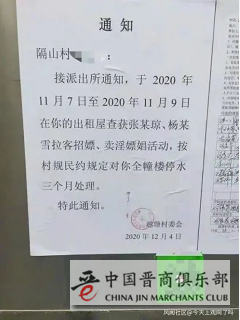 通知
隔山村
接派出所通知，于 2020 年
11 月 7 日至 2020 年 11 月 9 日
在你的出租屋查获张某琼、杨某
雪拉客招嫖、卖淫嫖娼活动，按
村规民约规定对你全幢楼停水
三个月处理。
特此通知。
村委会
2020 年 12 月 4 日
晋中国晋商俱乐部
CHINA JIN MARCHANTS CLUB
风闻社区@今天上观网了吗